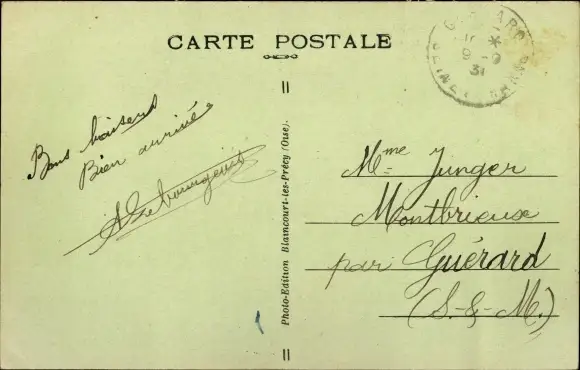 CARTE POSTALE
Bons baisers
Bien arrivé
Photo-Edition Blaincourt-les-Précy (Oise).
Mme Junger
Montbrieuse
par Guérard
(S.-&-M.)
31